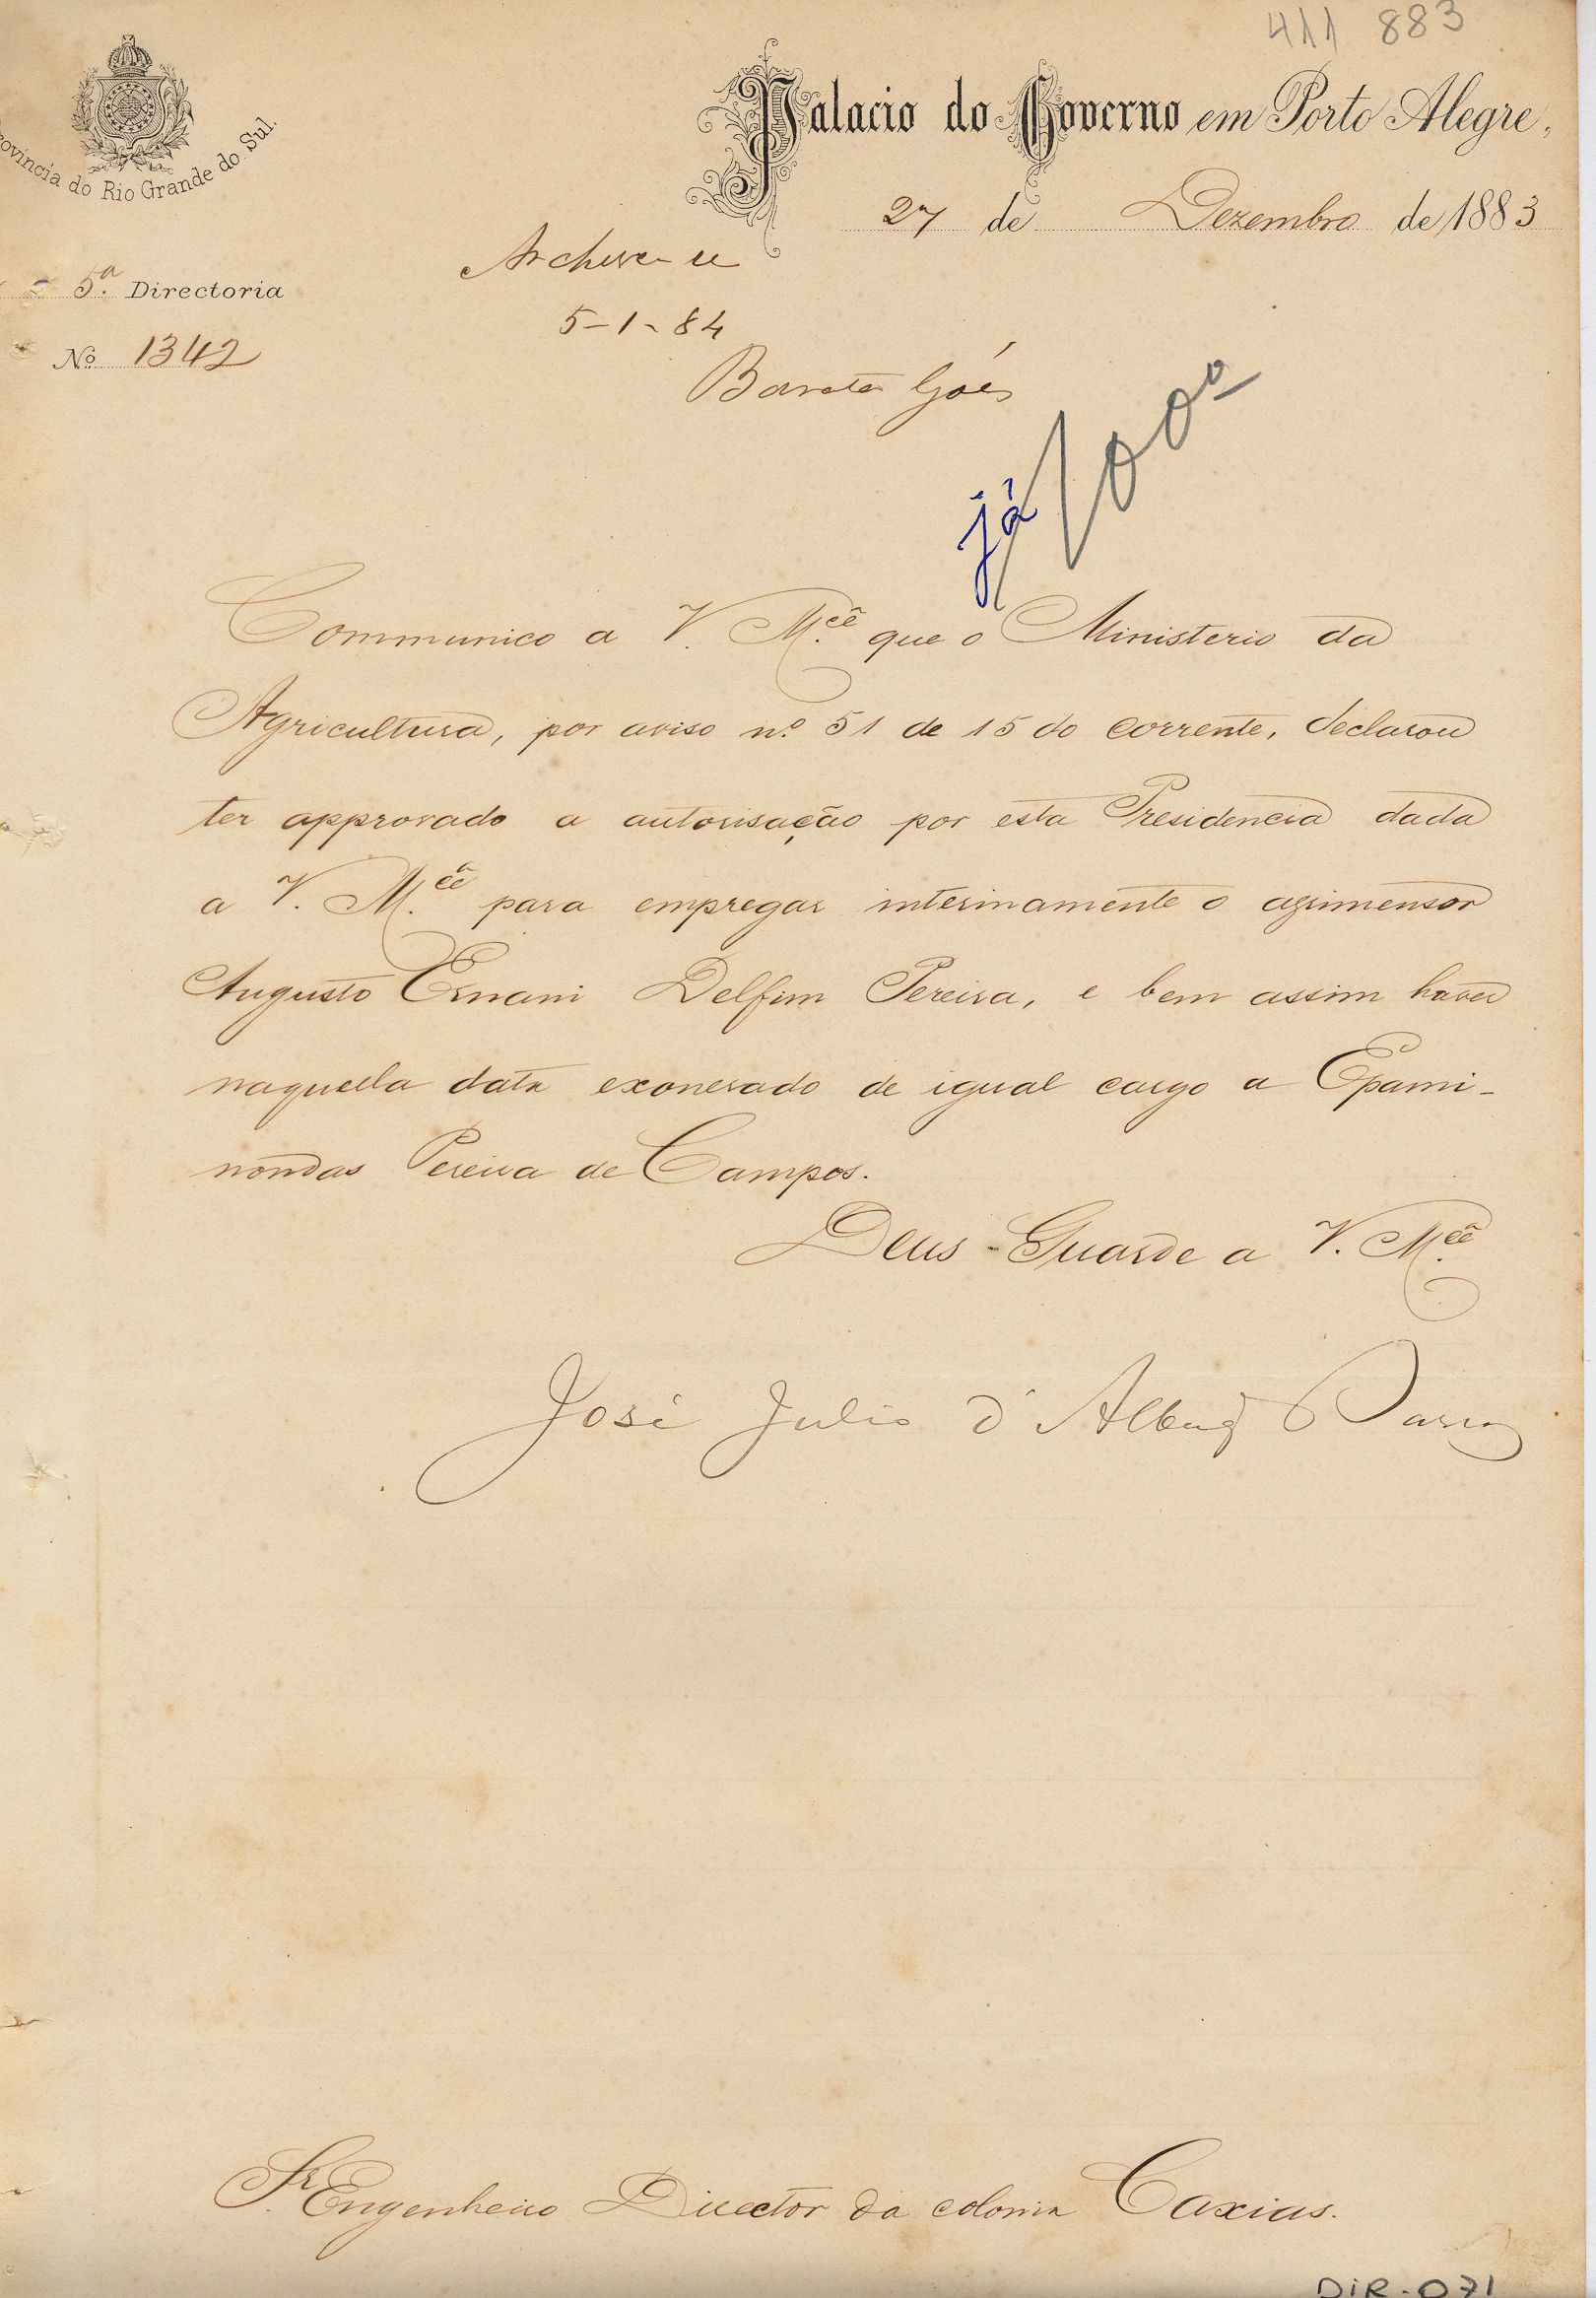 411 883
Palacio do Governo em Porto Alegre,
Provincia do Rio Grande do Sul.
27 de Dezembro de 1883
Archive-se
5ª Directoria
5-1-84
Nº 1342
Barata Góes
já
Communico a V. M.cê que o Ministerio da
Agricultura, por aviso nº 51 de 15 do corrente, declarou
ter approvado a autorisação por esta Presidencia dada
a V. M.cê para empregar interinamente o agrimensor
Augusto Ernani Delfim Pereira, e bem assim haver
naquella data exonerado de igual cargo a Epami-
nondas Pereira de Campos.
Deus Guarde a V. M.cê
José Julio d'Albuq Barros
Sr. Engenheiro Director da colonia Caxias.
DiR-071